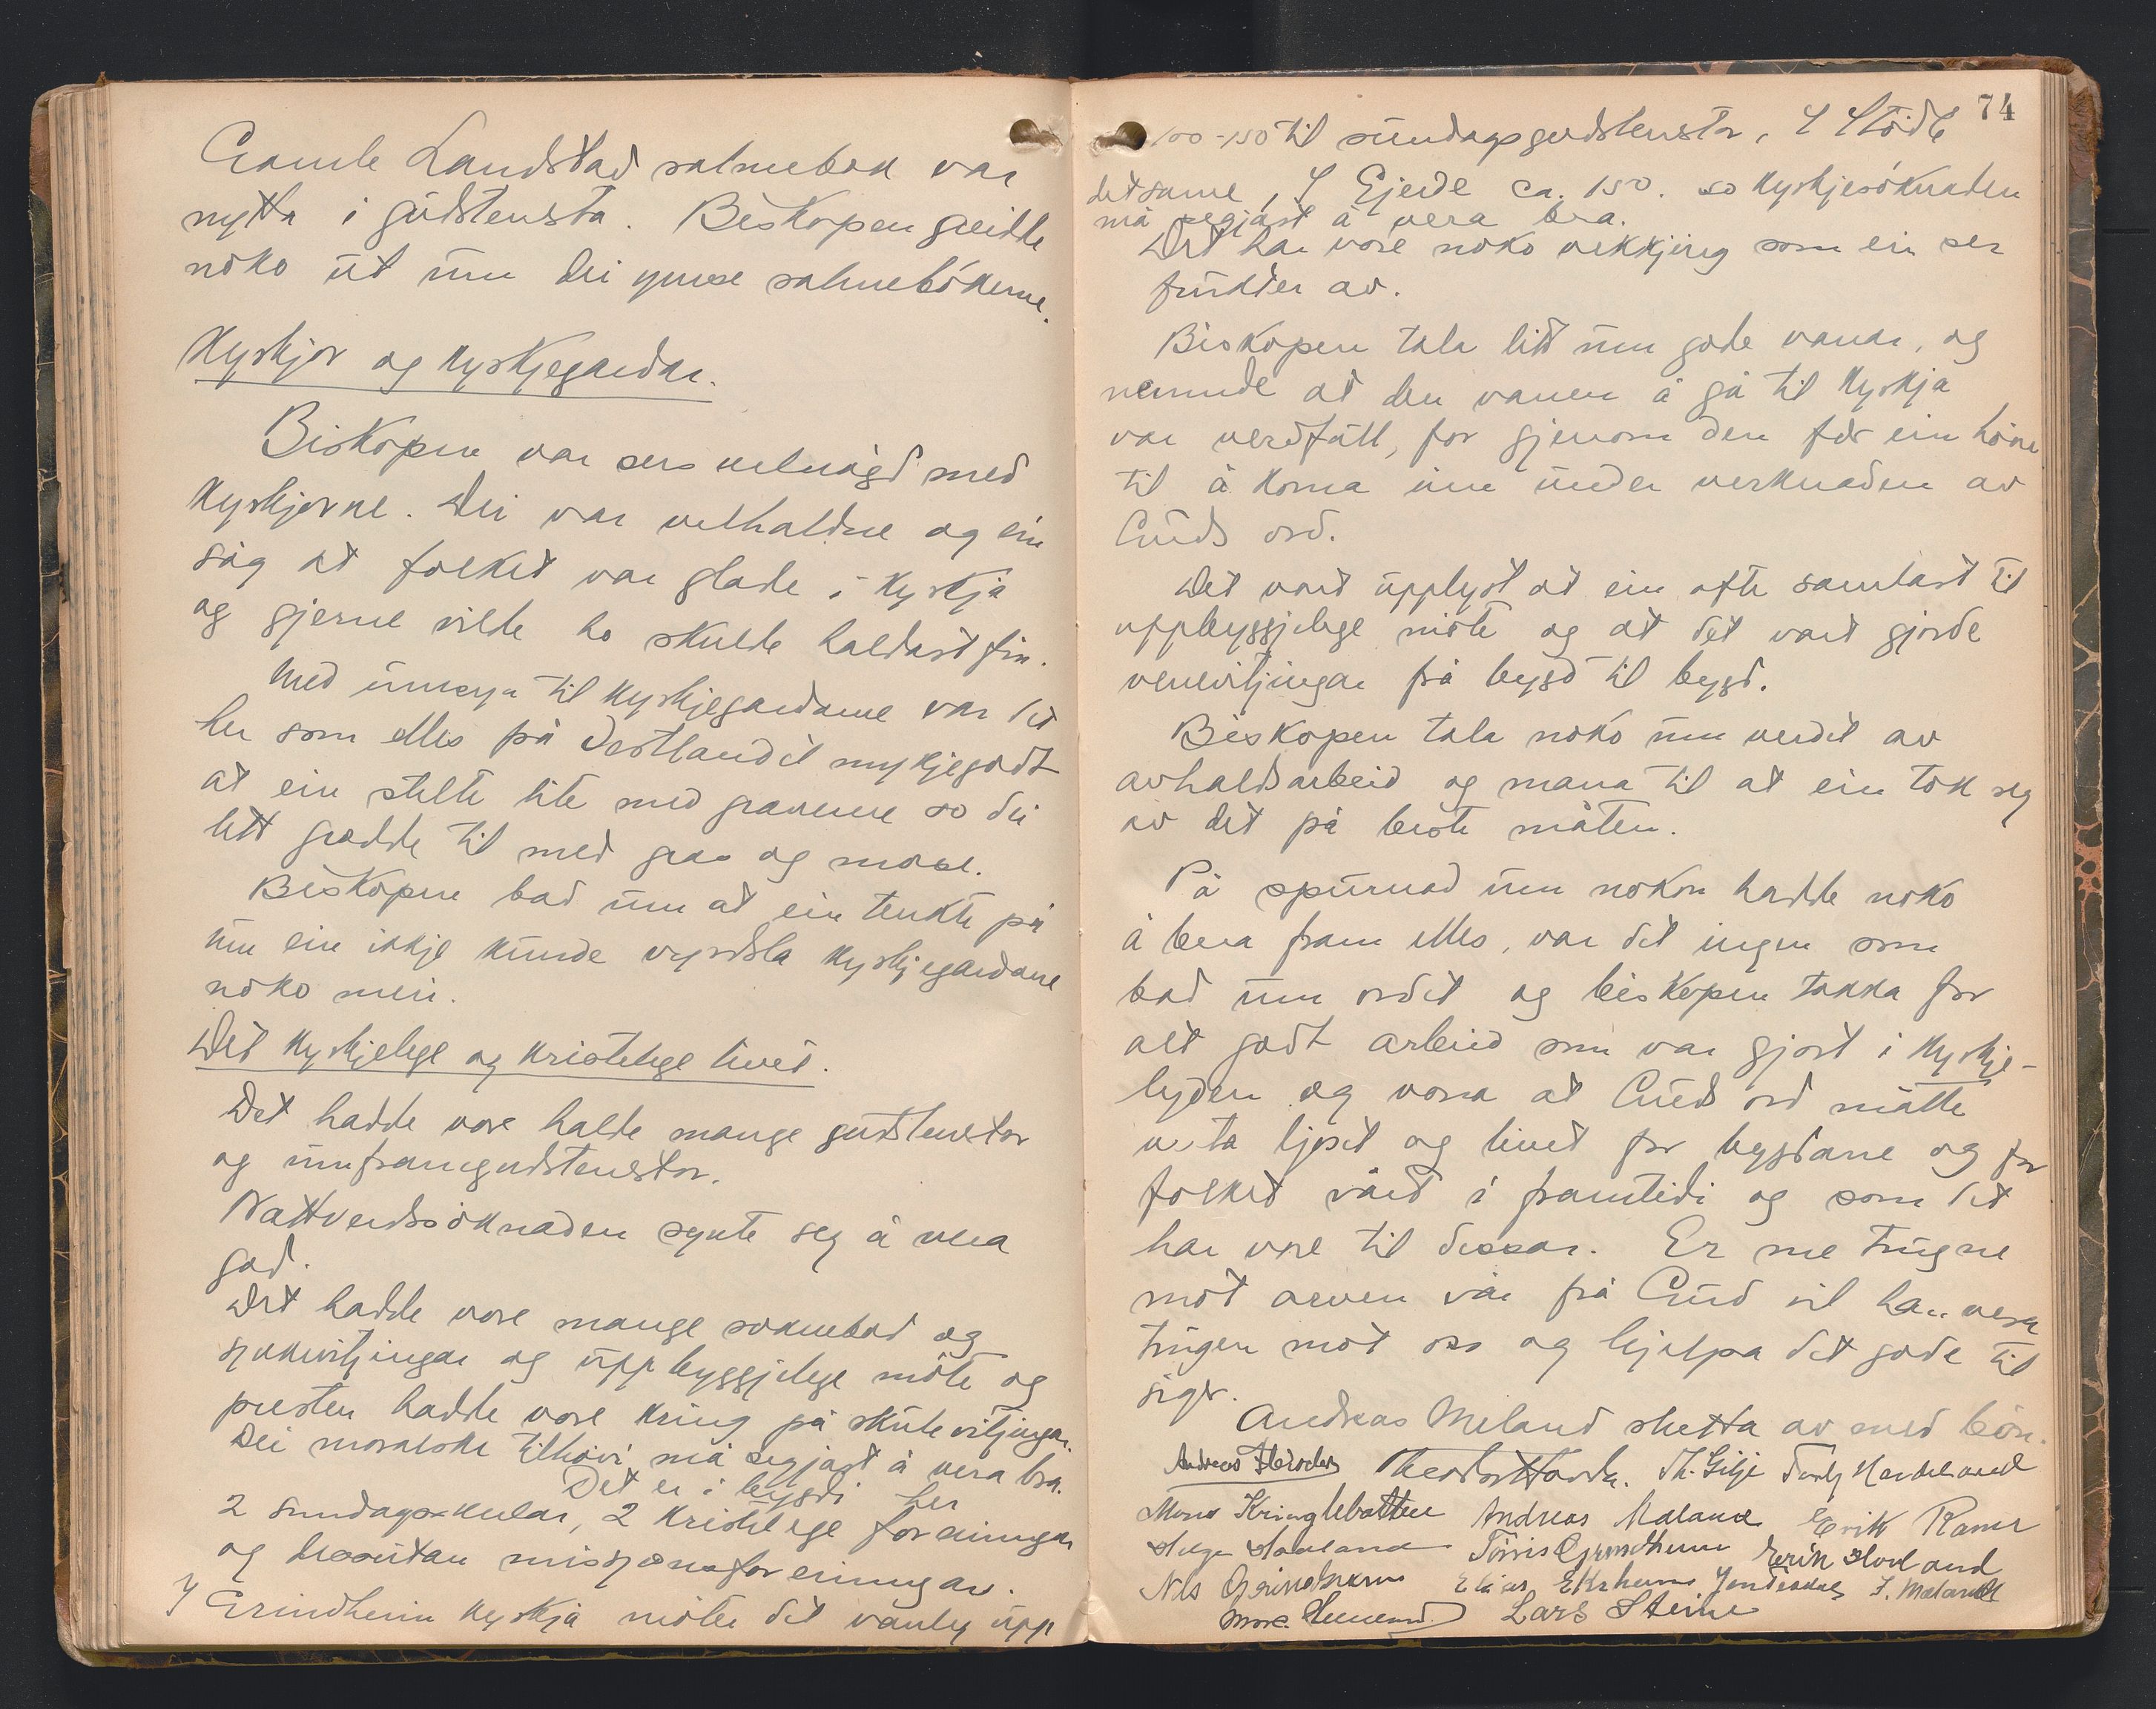 Gamle Landstad salmebok var
nytta i gudstensta. Biskopen greidde
noko ut um dei ymse salmebökerne.
Kyrkjor og kyrkjegardar.
Biskopen var sers velnögd med
kyrkjorne. Dei var velhaldne og ein
såg at folket var glade i kyrkja
og gjerne vilde ho skulde haldast fin.
Med umsyn til kyrkjegardane var det
her som elles på Vestlandet mykje godt
at ein stelte lite med gravene so dei
lett grodde til med gras og mose.
Biskopen bad um at ein tenkte på
um ein ikkje kunde vyrdsla kyrkjegardane
noko meir.
Det kyrkjelege og kristelege livet.
Det hadde vore halde mange gudstenstor
og umframgudstenstor.
Nattverdsöknaden synte seg å vera
god.
Det hadde vore mange soknebod og
sjukevitjingar og uppbyggjelege möte og
presten hadde vore kring på skulevitjingar.
Dei moralske tilhövi må segjast å vera bra.
Det er i bygdi her
2 sundagsskular, 2 kristelege foreiningar
og dessutan misjonsforeiningar.
I Grindheim kyrkja möter det vanleg upp
74
100-150 til sundagsgudstenstor, I Stödle
detsame, I Gjerde ca. 150. so kyrkjesöknaden
må segjast å vera bra.
Det har vore noko vekkjing som ein ser
frukter av.
Biskopen tala litt um gode vanar, og
nemnde at den vanen å gå til kyrkja
var verdfull, for gjenom den får ein höve
til å koma inn under verknaden av
Guds ord.
Det vart upplyst at ein ofte samlast til
uppbyggjelege möte og at det vart gjorde
venevitjingar frå bygd til bygd.
Biskopen tala noko um verdet av
avhaldsarbeid og mana til at ein tok seg
av det på beste måten.
På spurnad um nokon hadde noko
å bera fram elles, var det ingen som
bad um ordet og biskopen takka for
alt godt arbeid som var gjort i kyrkje-
lyden og vona at Guds ord måtte
verta ljoset og livet for bygdane og for
folket vårt i framtidi og som det
har vore til dessar. Er me trugne
mot arven vår frå Gud vil han vera
trugen mot oss og hjelpa det gode til
siger.
Andreas Meland sletta av med bön.
Andreas Fleischer Th. Gilje
Mons Kringlebotten Andreas Maland Erik Ramr
Helge Torris Grindheim Erik Hovland
Nils Grindheim Elias Ekrheim J. Maland
Lars Steine